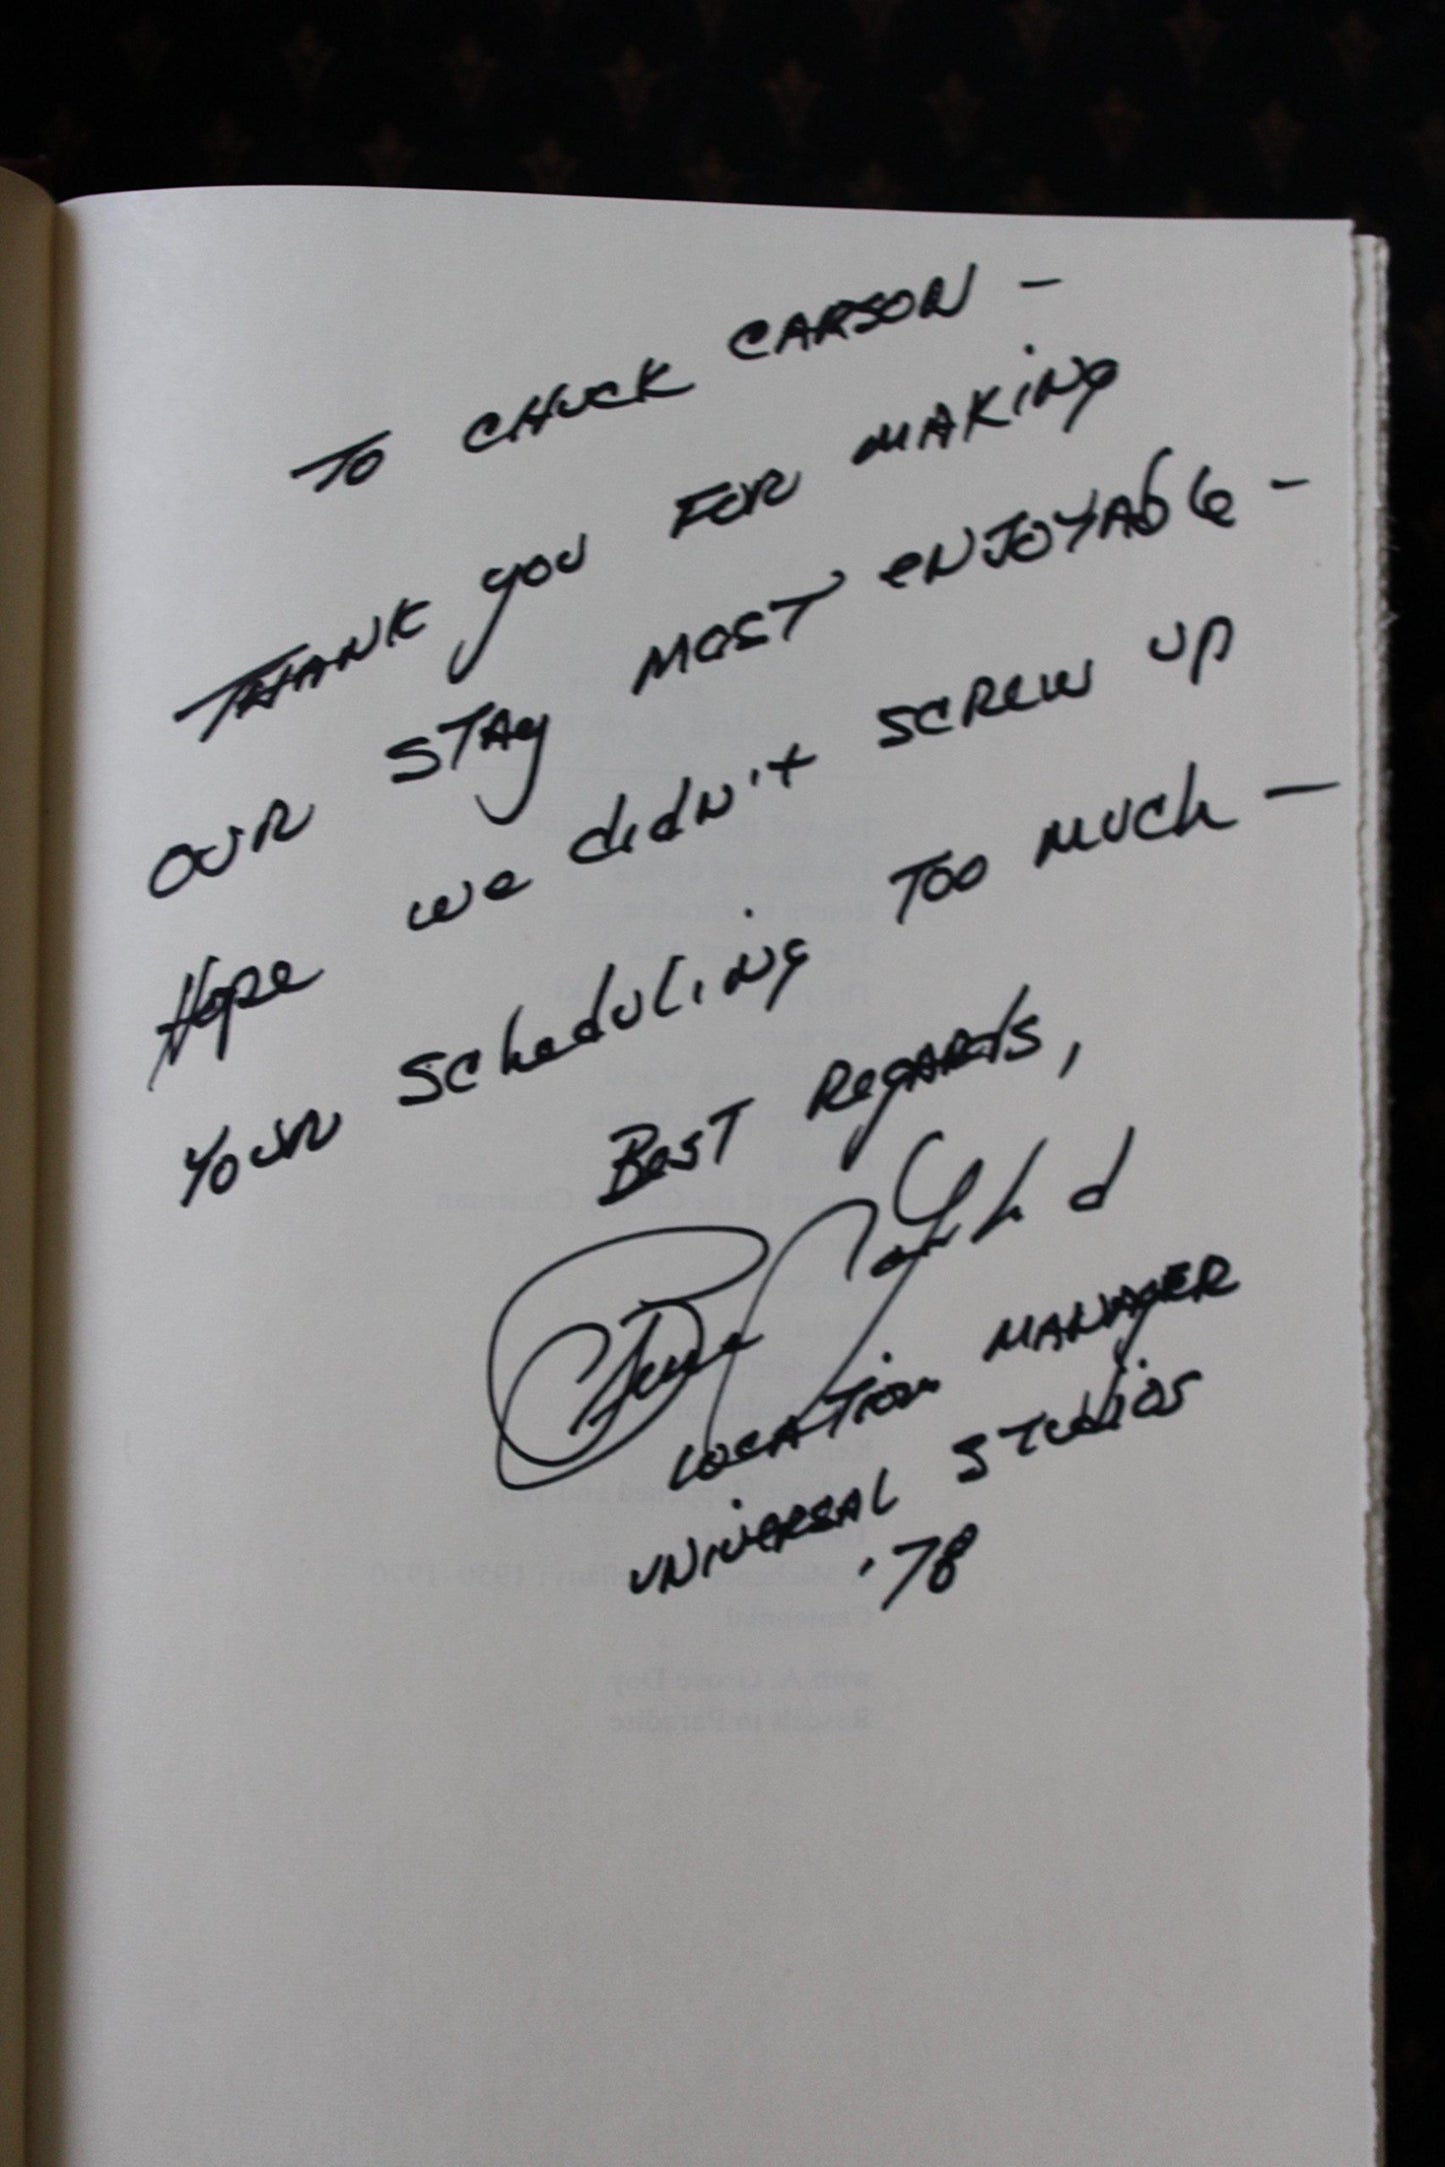 TO CHUCK CARSON -
THANK YOU FOR MAKING
OUR STAY MOST ENJOYABLE -
HOPE we didn't SCREW UP
YOUR SCHEDULING TOO MUCH -
BEST REGARDS,
LOCATION MANAGER
UNIVERSAL STUDIOS
'78